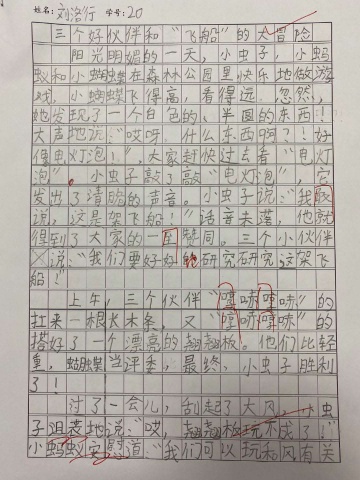 姓名:刘洛行 学号:20
三个好伙伴和“飞船”的大冒险
阳光明媚的一天,小虫子,小蚂
蚁和小蝴蝶在森林公园里快乐地做游
戏,小蝴蝶飞得高,看得远,忽然,
她发现了一个白色的、半圆的东西!
大声地说:“哎呀!什么东西啊?!好
像电灯泡!”,大家赶快过去看“电灯
泡”。小虫子敲了敲“电灯泡”,它
发出了清脆的声音。小虫子说:“我
说,这是架飞船!”话音未落,他就
得到了大家的一至赞同。三个小伙伴
说:“我们要好好研究研究这架飞
船!”
上午,三个伙伴“哼哧哼哧”的
扛来一根长木条,又“哼哧哼哧”的
搭好了一个漂亮的翘翘板。他们比轻
重,蝴蝶当评委,最终,小虫子胜利
了!
过了一会儿,乱起了大风,小虫
子沮丧地说:“哎,翘翘板玩不成了!”
小蚂蚁安慰道:“我们可以玩和风有关